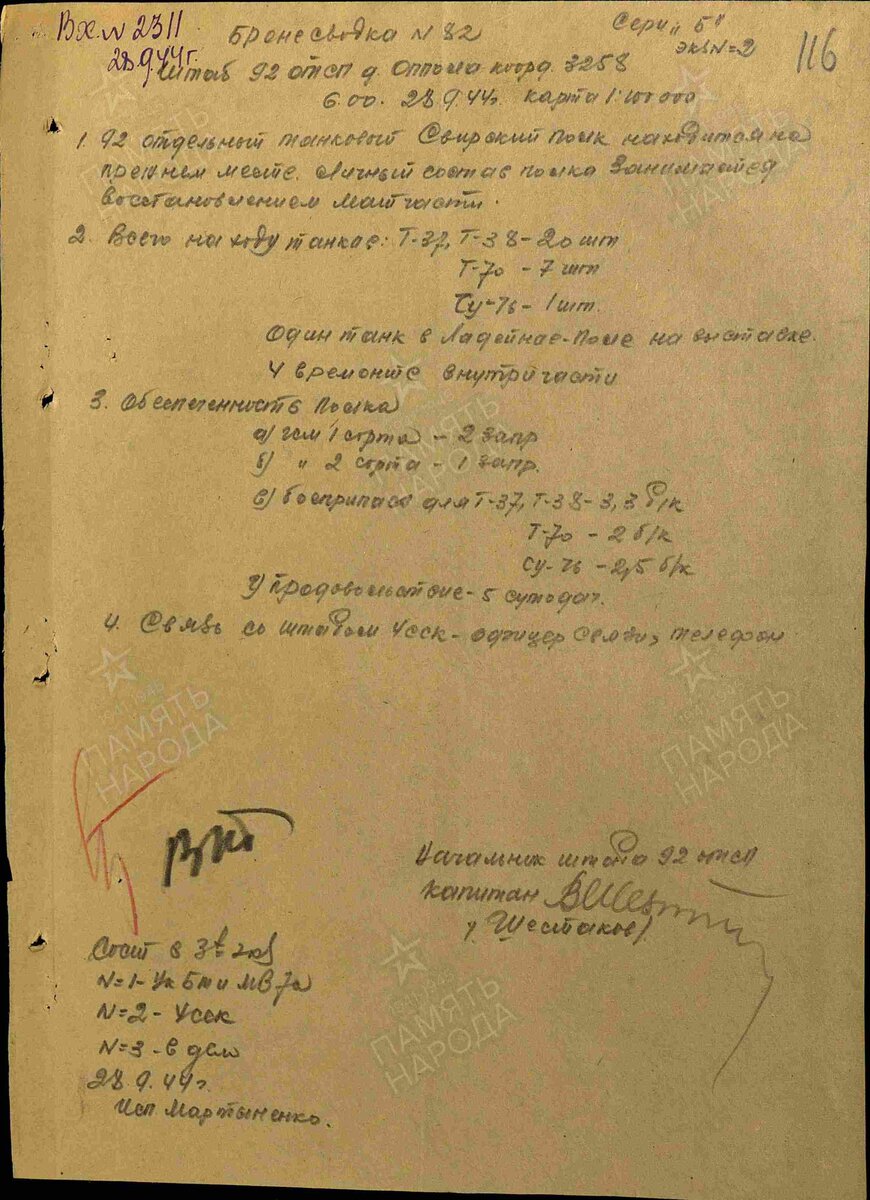 Вх № 2311
28.9.44 г.
Бронесводка № 82
Сери „Б"
Экз № = 2
116
Штаб 92 отсп д. коорд. 3258
6.00. 28.9.44 г. карта 1:100000
1. 92 отдельный танковый Свирский полк находится на
прежнем месте. Личный состав полка занимается
восстановлением матчасти.
2. Всего на ходу танков: Т-37, Т-38 - 20 шт
Т-70 - 7 шт
Су-76 - 1 шт.
Один танк в Ладейное-Поле на выставке.
4 в ремонте внутри части
3. Обеспеченность полка
а) гсм 1 сорта - 2 запр
б) " 2 сорта - 1 запр.
в) боеприпасы для Т-37, Т-38 - 3,3 б/к
Т-70 - 2 б/к
Су-76 - 2,5 б/к
г) продовольствие - 5 сутодач.
4. Связь со штабом 4сск - офицер связи, телефон
Начальник штаба 92 отсп
капитан
/Шестаков/
N=1- Ук БТ и МВ 7а
N=2 - 4сск
N=3 - в дело
28.9.44 г.
Исп Мартыненко.
ПАМЯТЬ
НАРОДА
ПАМЯТЬ
НАРОДА
ПАМЯТЬ
НАРОДА
ПАМЯТЬ
НАРОДА
ПАМЯТЬ
НАРОДА
ПАМЯТЬ
НАРОДА